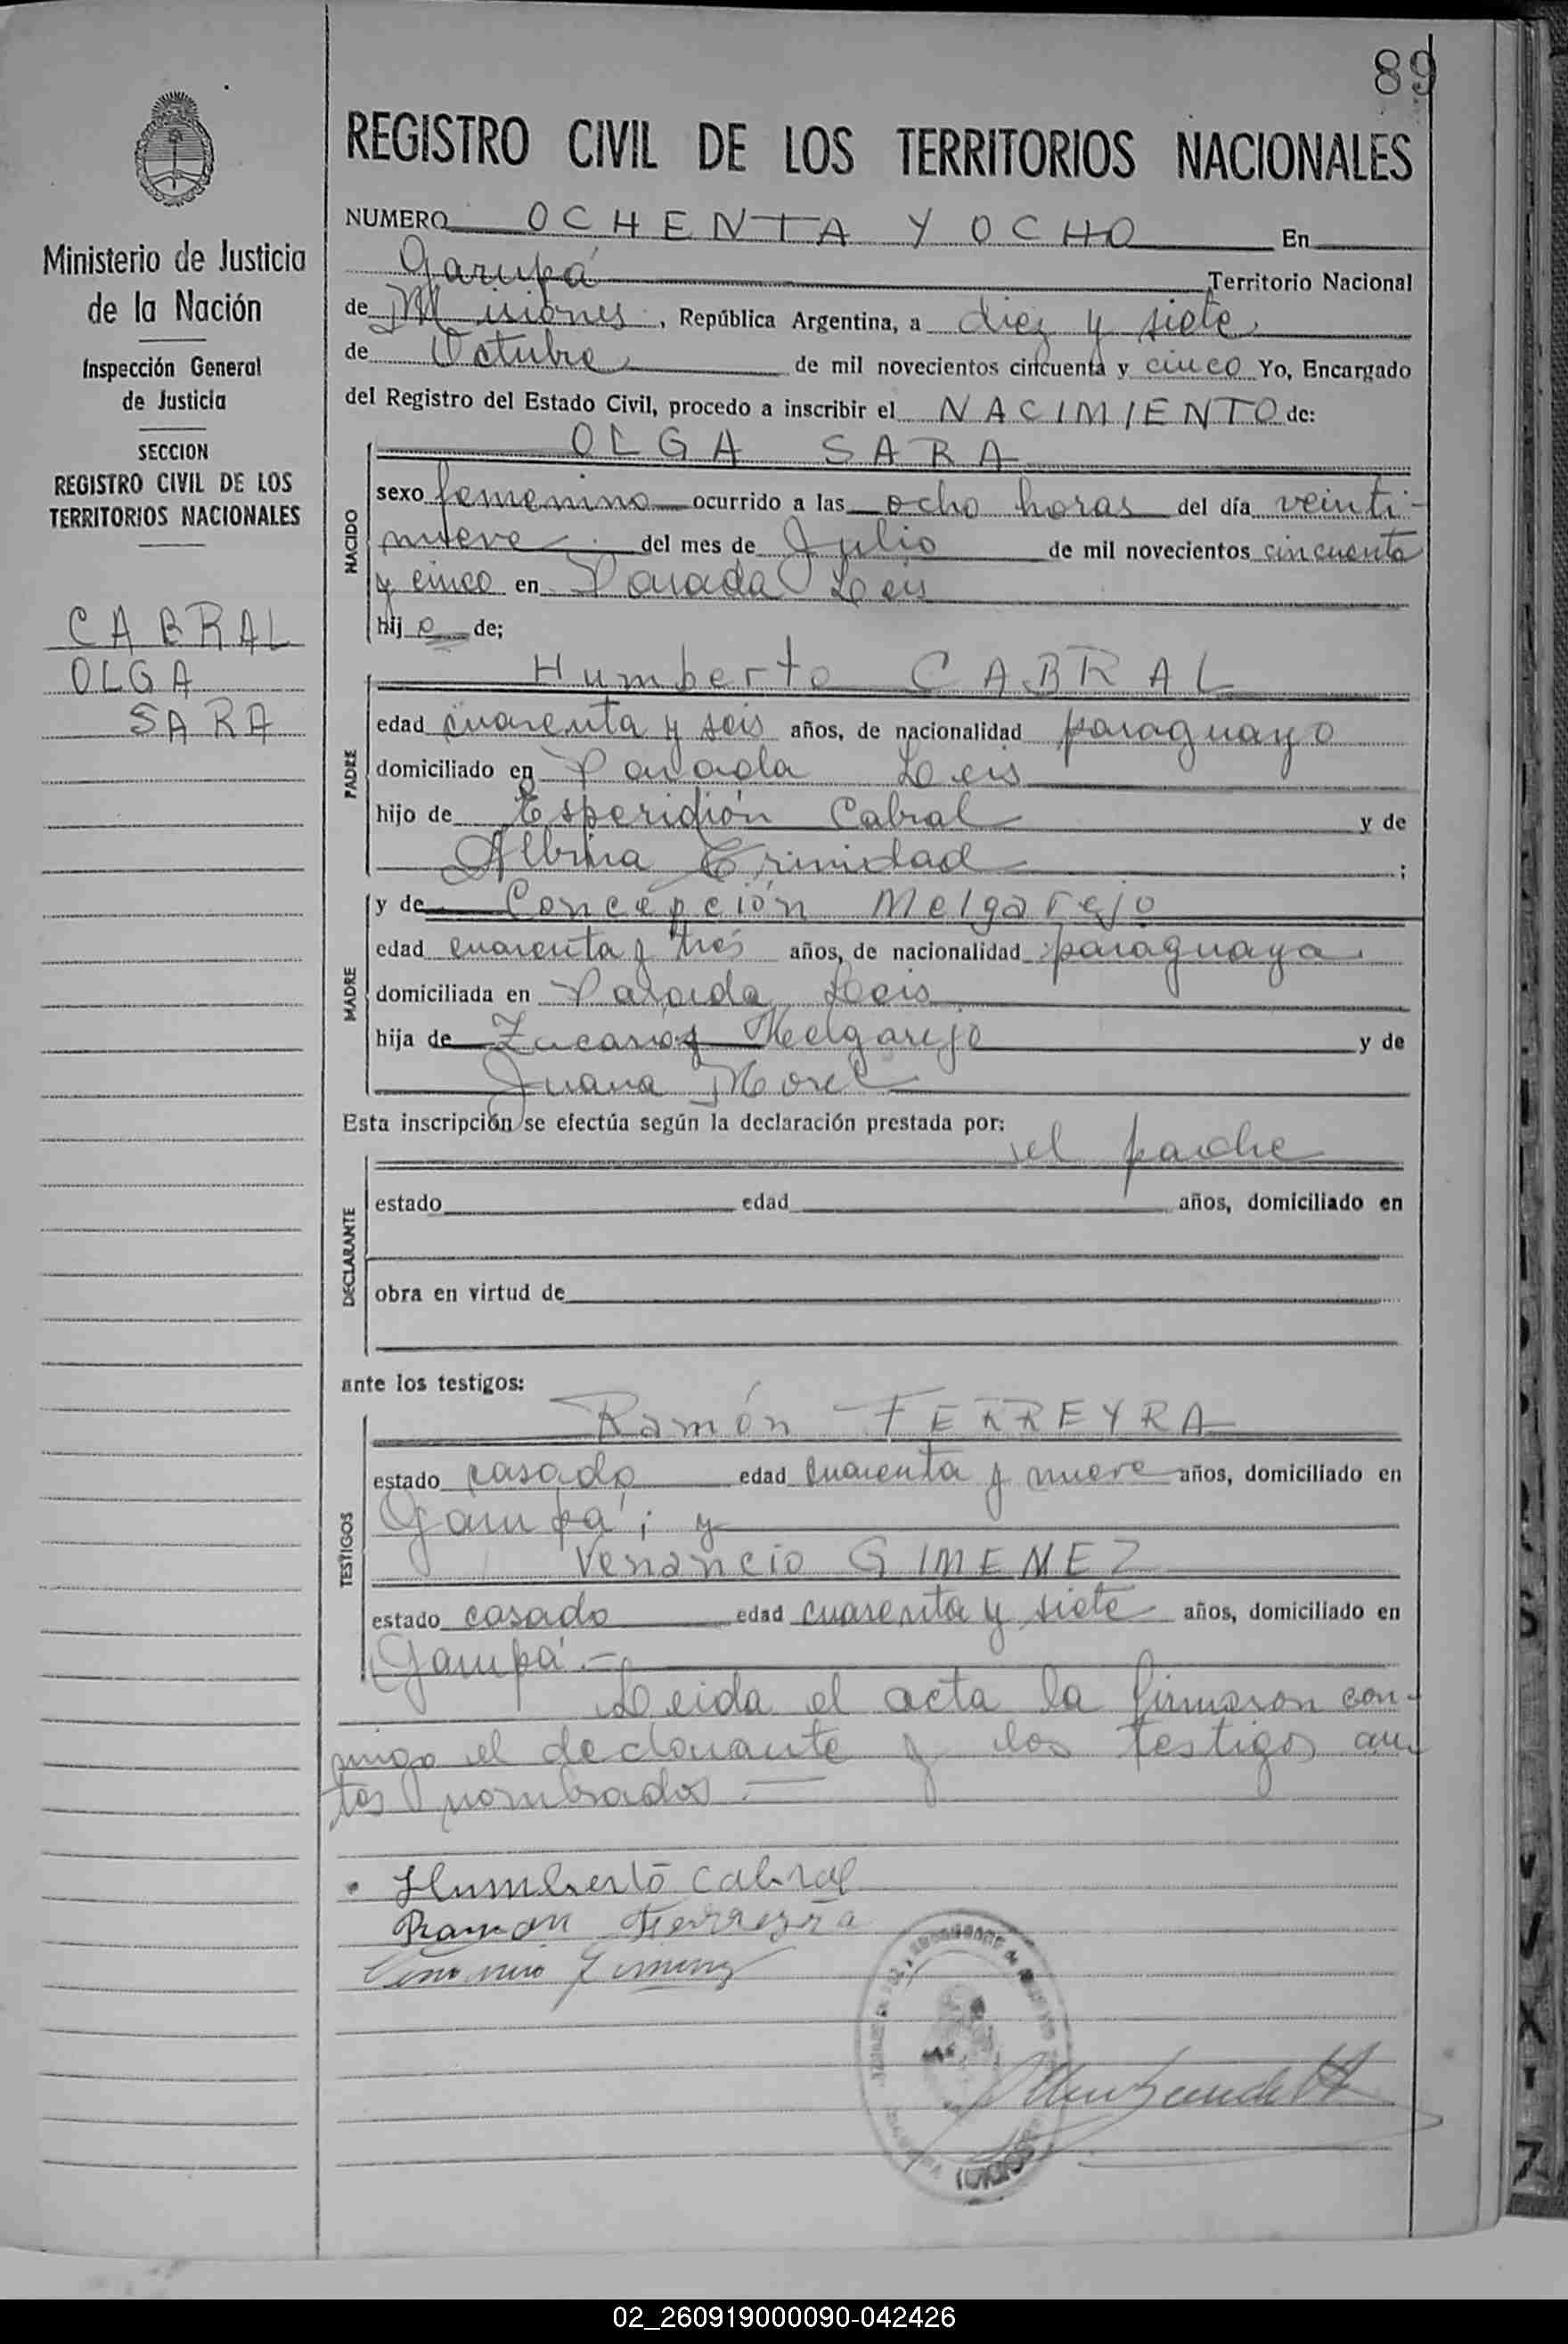 89
REGISTRO CIVIL DE LOS TERRITORIOS NACIONALES
Ministerio de Justicia
de la Nación
Inspección General
de Justicia
SECCION
REGISTRO CIVIL DE LOS
TERRITORIOS NACIONALES
CABRAL
OLGA
SARA
NUMERO OCHENTA Y OCHO En
Garupá Territorio Nacional
de Misiones, República Argentina, a diez y siete
de Octubre de mil novecientos cincuenta y cinco Yo, Encargado
del Registro del Estado Civil, procedo a inscribir el NACIMIENTO de:
OLGA SARA
NACIDO
sexo femenino ocurrido a las ocho horas del día veinti-
nueve del mes de Julio de mil novecientos cincuenta
y cinco en Parada Leis
hij a de;
Humberto CABRAL
PADRE
edad cuarenta y seis años, de nacionalidad paraguayo
domiciliado en Parada Leis
hijo de Esperidión Cabral y de
Albina Trinidad ;
y de Concepción Melgarejo
MADRE
edad cuarenta y tres años, de nacionalidad paraguaya
domiciliada en Parada Leis
hija de Zacarías Melgarejo y de
Juana Morel
Esta inscripción se efectúa según la declaración prestada por:
el padre
DECLARANTE
estado edad años, domiciliado en
obra en virtud de
ante los testigos:
Ramón FERREYRA
TESTIGOS
estado casado edad cuarenta y nueve años, domiciliado en
Garupá; y
Venancio GIMENEZ
estado casado edad cuarenta y siete años, domiciliado en
Garupá.-
Leida el acta la firmaron con-
migo el declarante y los testigos an-
tes nombrados.—
Humberto Cabral
Ramon Ferreyra
02_260919000090-042426